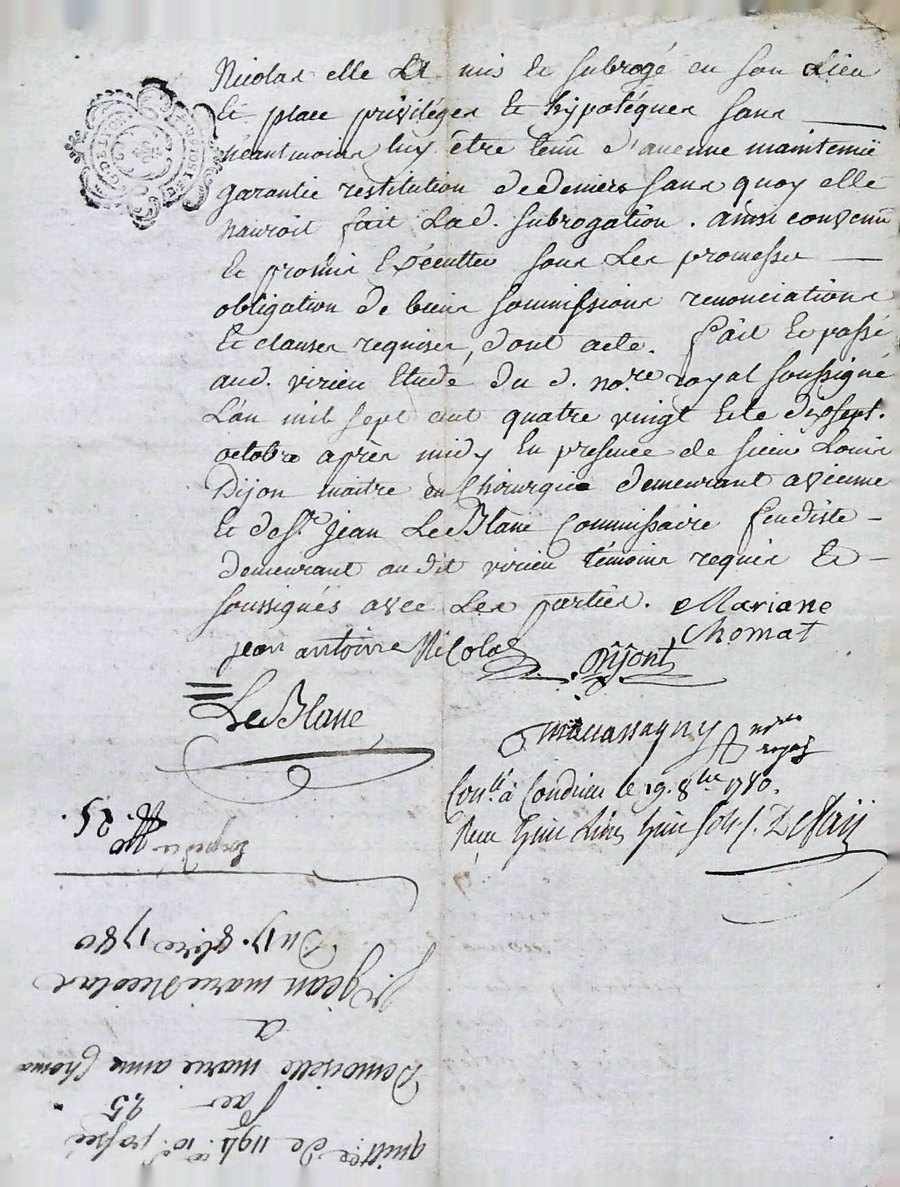 Nicolas elle La mis et subrogé en son Lieu
Et place privileges Et hypoteques sans
neantmoins luy être tenü d'aucune maintenüe
garantie restitution de deniers sans quoy elle
nauroit fait Lad. subrogation. ainsi convenü
Et promis Exécutter sous Les promesses
obligation de biens soumissions renonciations
Et clauses requises, dont acte. fait Et passé
aud. virieu Etude du d. no.re royal soussigné
L'an mil sept cent quatre vingt Et le dixsept.
octobre après midy En presence de sieur Louis
Dijon maitre en Chirurgie demeurant a vienne
Et de Sr. jean LeBlanc Commissaire feudiste
demeurant audit virieu témoins requis Et
soussignés avec Les parties. Mariane
Chomat
jean antoine Nicolas Dijont
LeBlanc
royal
Con.llé à Condrieu le 19. 8bre 1780.
Reçu
25.
Expédié
Du 17. 8bre 1780
Sr jean marie Nicolas
a
Demoiselle marie anne Choma
par
25
quittce de 1194 passée